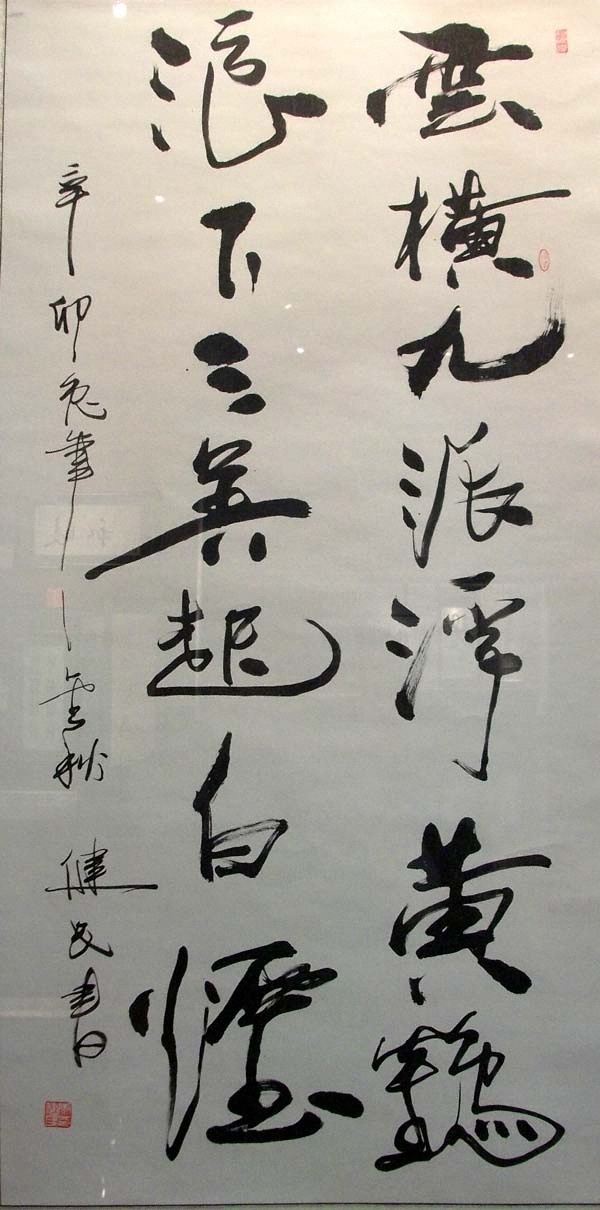 雲橫九派浮黄鶴
浪下三吴起白煙
辛卯兔年之金秋 健民書